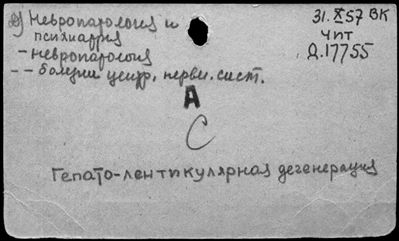 Невропатология и
психиатрия
- невропатология
-- болезни центр. нервн. сист.
31.X57 ВК
ЧПТ
Д.17755
А
С
Гепато-лентикулярная дегенерация